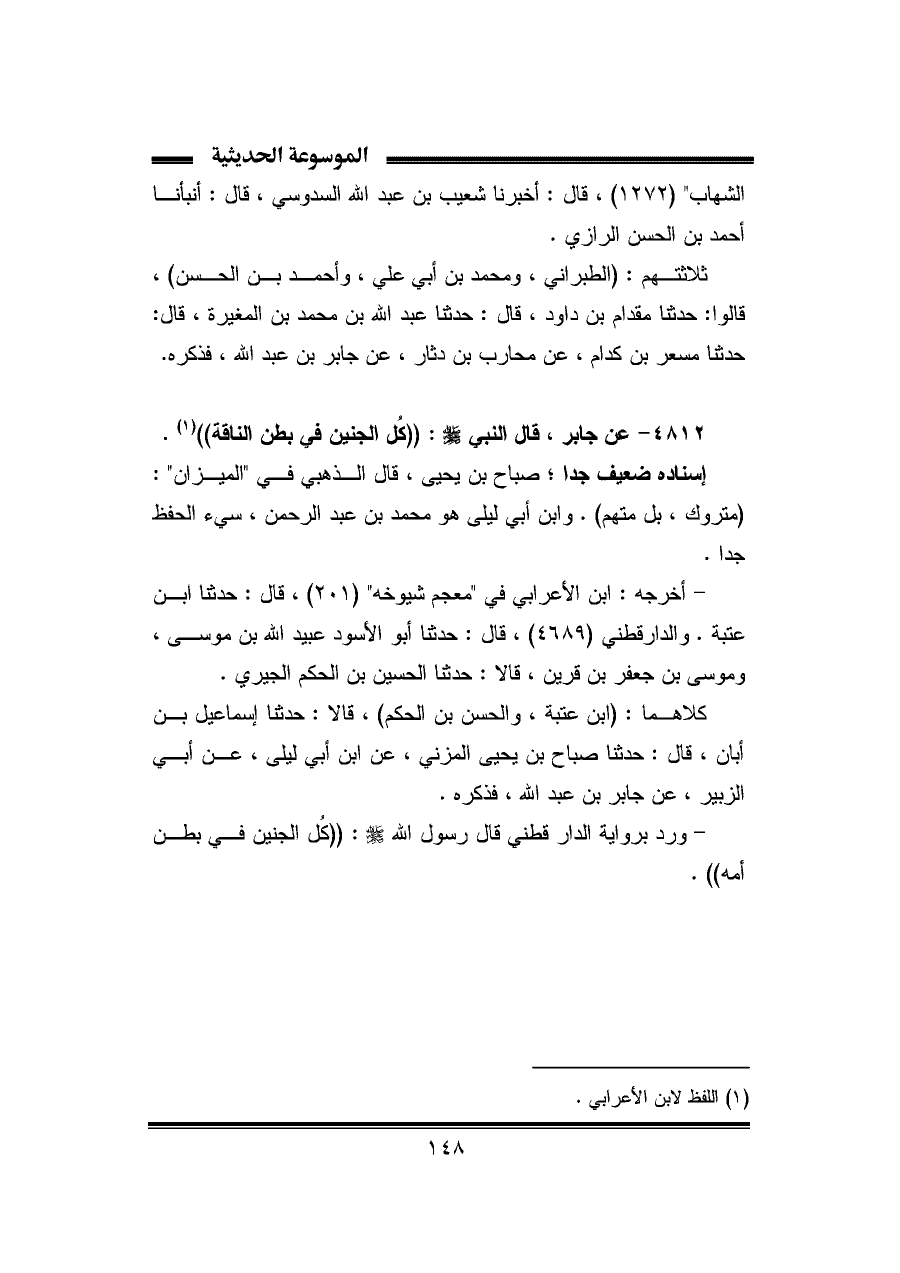 الموسوعة الحديثية
الشهاب" (١٢٧٢) ، قال : أخبرنا شعيب بن عبد الله السدوسي ، قال : أنبأنـــا
أحمد بن الحسن الرازي .
ثلاثتـــهم : (الطبراني ، ومحمد بن أبي علي ، وأحمـــد بـــن الحـــسن) ،
قالوا: حدثنا مقدام بن داود ، قال : حدثنا عبد الله بن محمد بن المغيرة ، قال:
حدثنا مسعر بن كدام ، عن محارب بن دثار ، عن جابر بن عبد الله ، فذكره.
٤٨١٢- عن جابر ، قال النبي ﷺ : ((كُل الجنين في بطن الناقة))(١) .
إسناده ضعيف جدا ؛ صباح بن يحيى ، قال الـــذهبي فـــي "الميـــزان" :
(متروك ، بل متهم) . وابن أبي ليلى هو محمد بن عبد الرحمن ، سيء الحفظ
جدا .
- أخرجه : ابن الأعرابي في "معجم شيوخه" (٢٠١) ، قال : حدثنا ابـــن
عتبة . والدارقطني (٤٦٨٩) ، قال : حدثنا أبو الأسود عبيد الله بن موســـى ،
وموسى بن جعفر بن قرين ، قالا : حدثنا الحسين بن الحكم الجيري .
كلاهـــما : (ابن عتبة ، والحسن بن الحكم) ، قالا : حدثنا إسماعيل بـــن
أبان ، قال : حدثنا صباح بن يحيى المزني ، عن ابن أبي ليلى ، عـــن أبـــي
الزبير ، عن جابر بن عبد الله ، فذكره .
- ورد برواية الدار قطني قال رسول الله ﷺ : ((كُل الجنين فـــي بطـــن
أمه)) .
(١) اللفظ لابن الأعرابي .
١٤٨